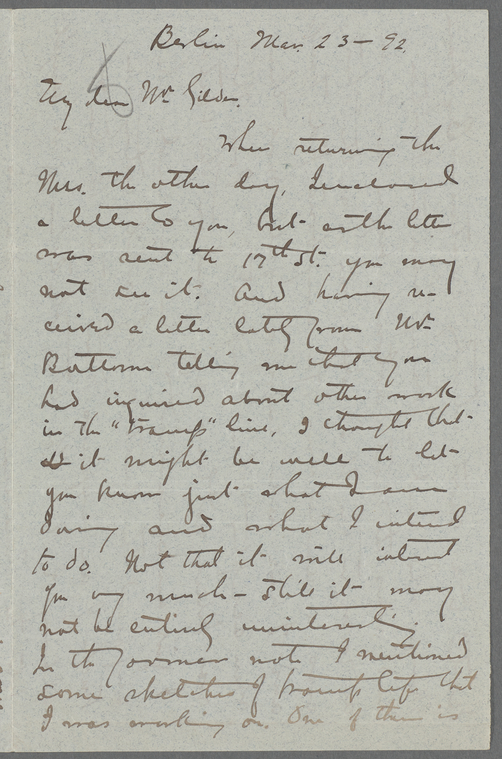 Berlin Mar. 23-92.
My dear Mr Gilder.
When returning the
Mss. the other day, I enclosed
a letter to you, but as the letter
was sent to 17th St. you may
not see it. And having re-
ceived a letter lately from Mr
Bottome telling me that you
had inquired about other work
in the "tramp" line, I thought that
it might be well to let
you know just what I am
doing and what I intend
to do. Not that it will interest
you very much - still it may
not be entirely uninteresting.
In the former note I mentioned
some sketches of tramp life that
I was working on. One of them is